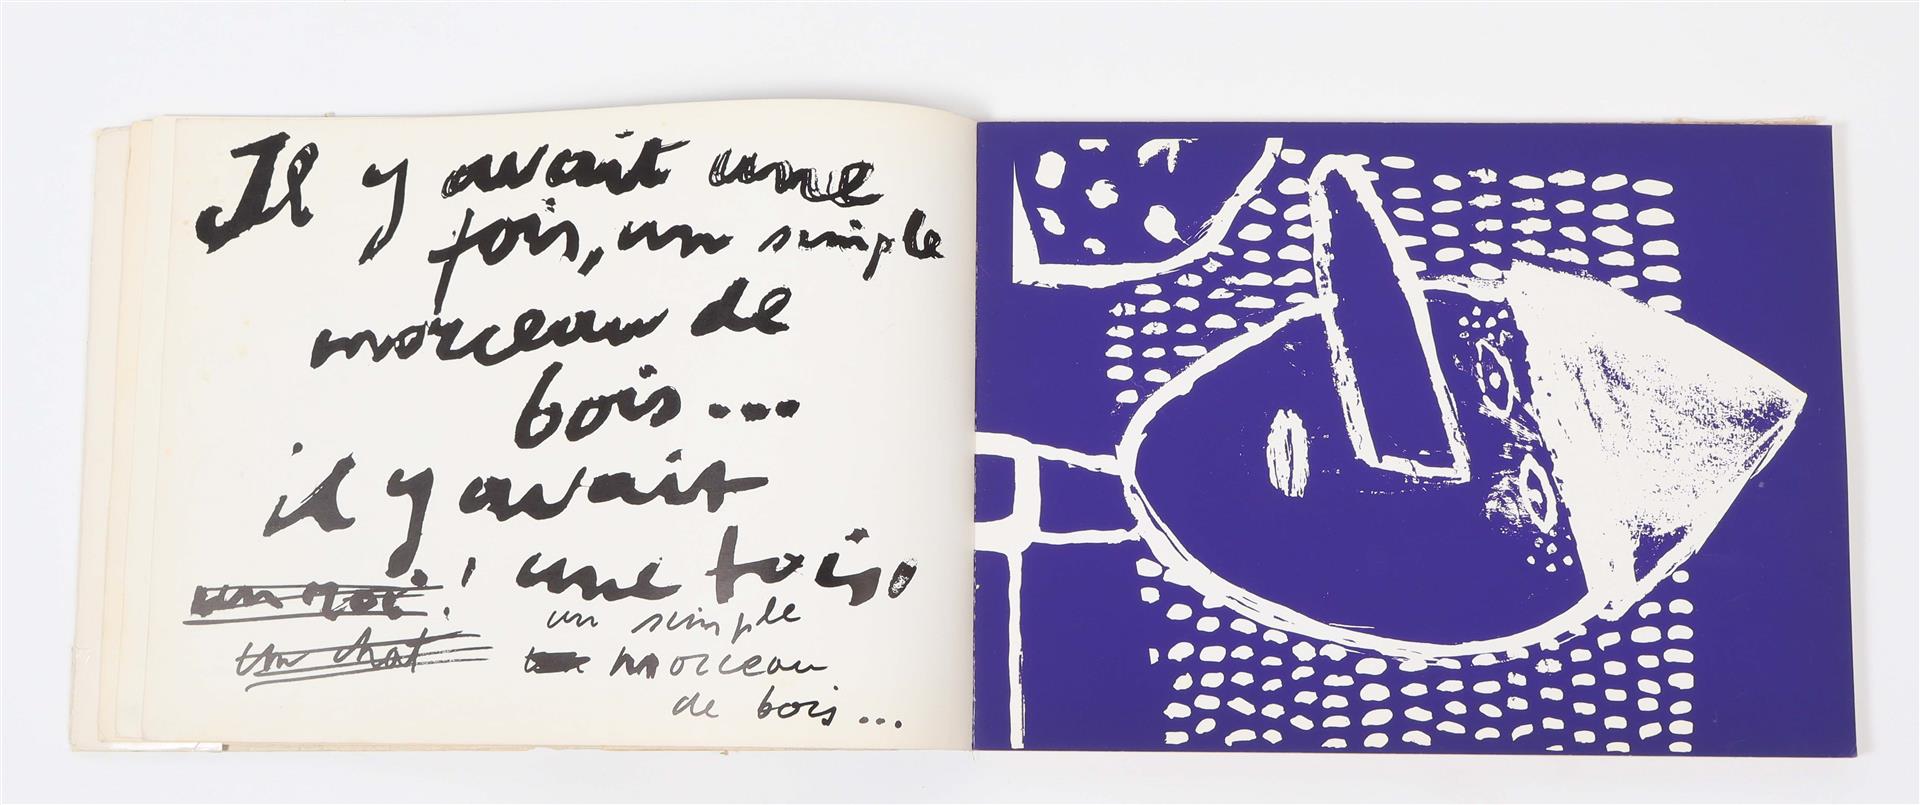 Il y avait une
fois, un simple
morceau de
bois...
il y avait
une fois,
un roi !
un simple
un chat
morceau
de bois...